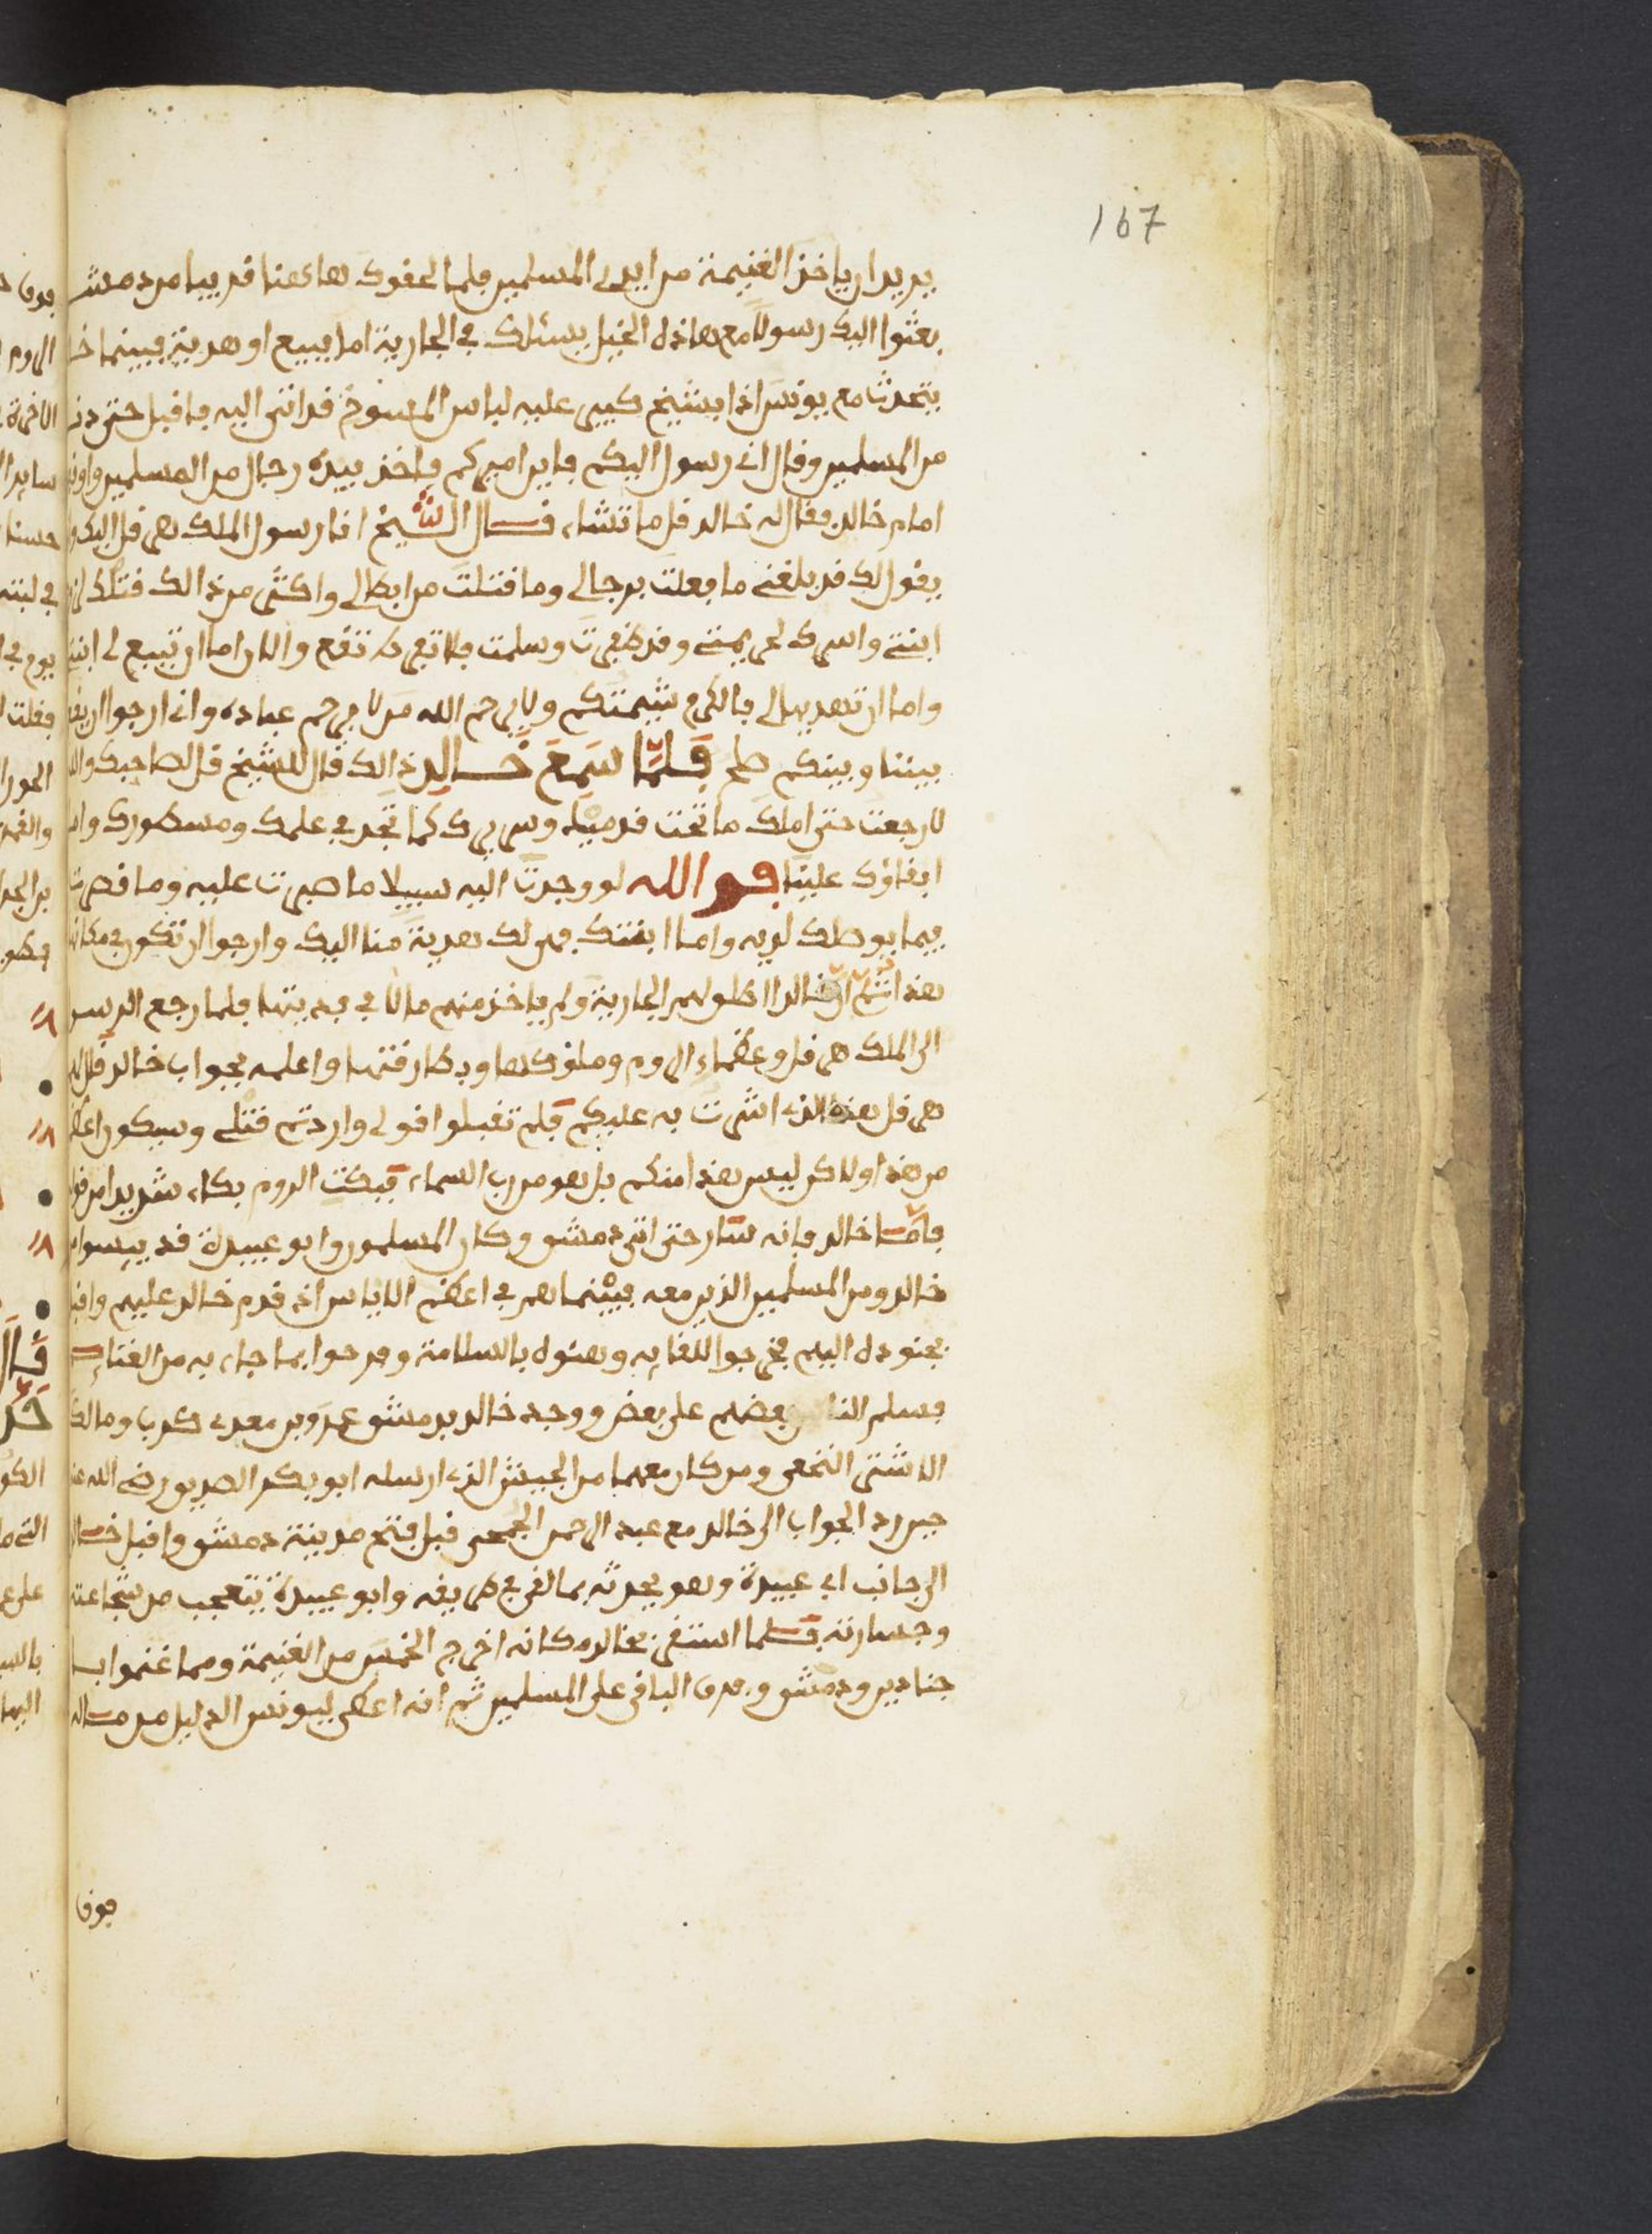 167
يريد ان ياخذ الغنيمة من ايدي المسلمين فلما لحقوك هاهنا قريبا من دمشق
بعثوا اليك رسولا مع هاذه الخيل يسئلك في الجارية اما ببيع او هدية فبينما خا
يتحدث مع يونس اذا بشيخ كبير عليه لباس المسوح قد اتى اليه فاقبل حتى دنا
من المسلمين وقال اني رسول اليكم فاين اميركم فاخذ بيده رجال من المسلمين واوقفوه
امام خالد فقال له خالد قل ما تشاء فقال الشيخ انا رسول الملك هرقل اليك و
يقول لك قد بلغني ما فعلت برجالي وما قتلت من ابطالي واكثر من ذالك قتلك
ابنتي واسرك لحريمتي وقد ظفرت وسلمت فلا تفرط تقع والان اما ان تبيع لي ابنتي
واما ان تهديها لي فالكرم شيمتكم ولا يرحم الله من لا يرحم عباده واني ارجوا ان يقع
بيننا وبينكم صلح فلما سمع خالد ذالك قال للشيخ قل لصاحبك والله
لا رجعت حتى املك ما تحت قدميه وسريرك كما تجد في علمك ومسطورك واما
ابقاؤك علينا فوالله لو وجدت اليه سبيلا ما صبرت عليه وما قصرت
فيما يوصلك لديه واما ابنتك فهي لك هدية منا اليك وارجوا ان تكون في مكانها
هذا ثم ان خالدا اطلق لهم الجارية ولم ياخذ منهم مالا في فديتها فلما رجع الرسول
الى الملك هرقل وعظماء الروم وملوكها وبطارقتها واعلمه بجواب خالد قال لهم
هرقل هذا الذي اشرت به عليكم فلم تقبلوا قولي واردتم قتلي وسيكون اعظم
من هذا ولاكن ليس هذا منكم بل هو من رب السماء فبكت الروم بكاء شديدا من قوله
فاما خالد فانه سار حتى اتى دمشق وكان المسلمون وابو عبيدة قد يئسوا من
خالد ومن المسلمين الذين معه فبينما هم في اعظم الاياس اذ قدم خالد عليهم واقبل
بجنوده اليهم فخرجوا للقايه وهنوه بالسلامة وفرحوا بما جاء به من الغنايم
فسلم الناس بعضهم على بعض ووجد خالد بدمشق عمرو بن معدي كرب ومالك
الاشتر النخعي ومن كان معهما من الجيش الذي ارسله ابو بكر الصديق رضي الله عنه
حين رد الجواب الى خالد مع عبد الرحمن الجمحي قبل فتح مدينة دمشق واقبل خالد
الى جانب ابي عبيدة وهو يحدثه بما لقي في طريقه وابو عبيدة يتعجب من شجاعته
وجسارته فلما استقر بخالد مكانه اخرج الخمس من الغنيمة ومما غنموا ب
جنادين ودمشق وفرق الباقي على المسلمين ثم انه اعطى ليونس الدليل من ماله
فوق